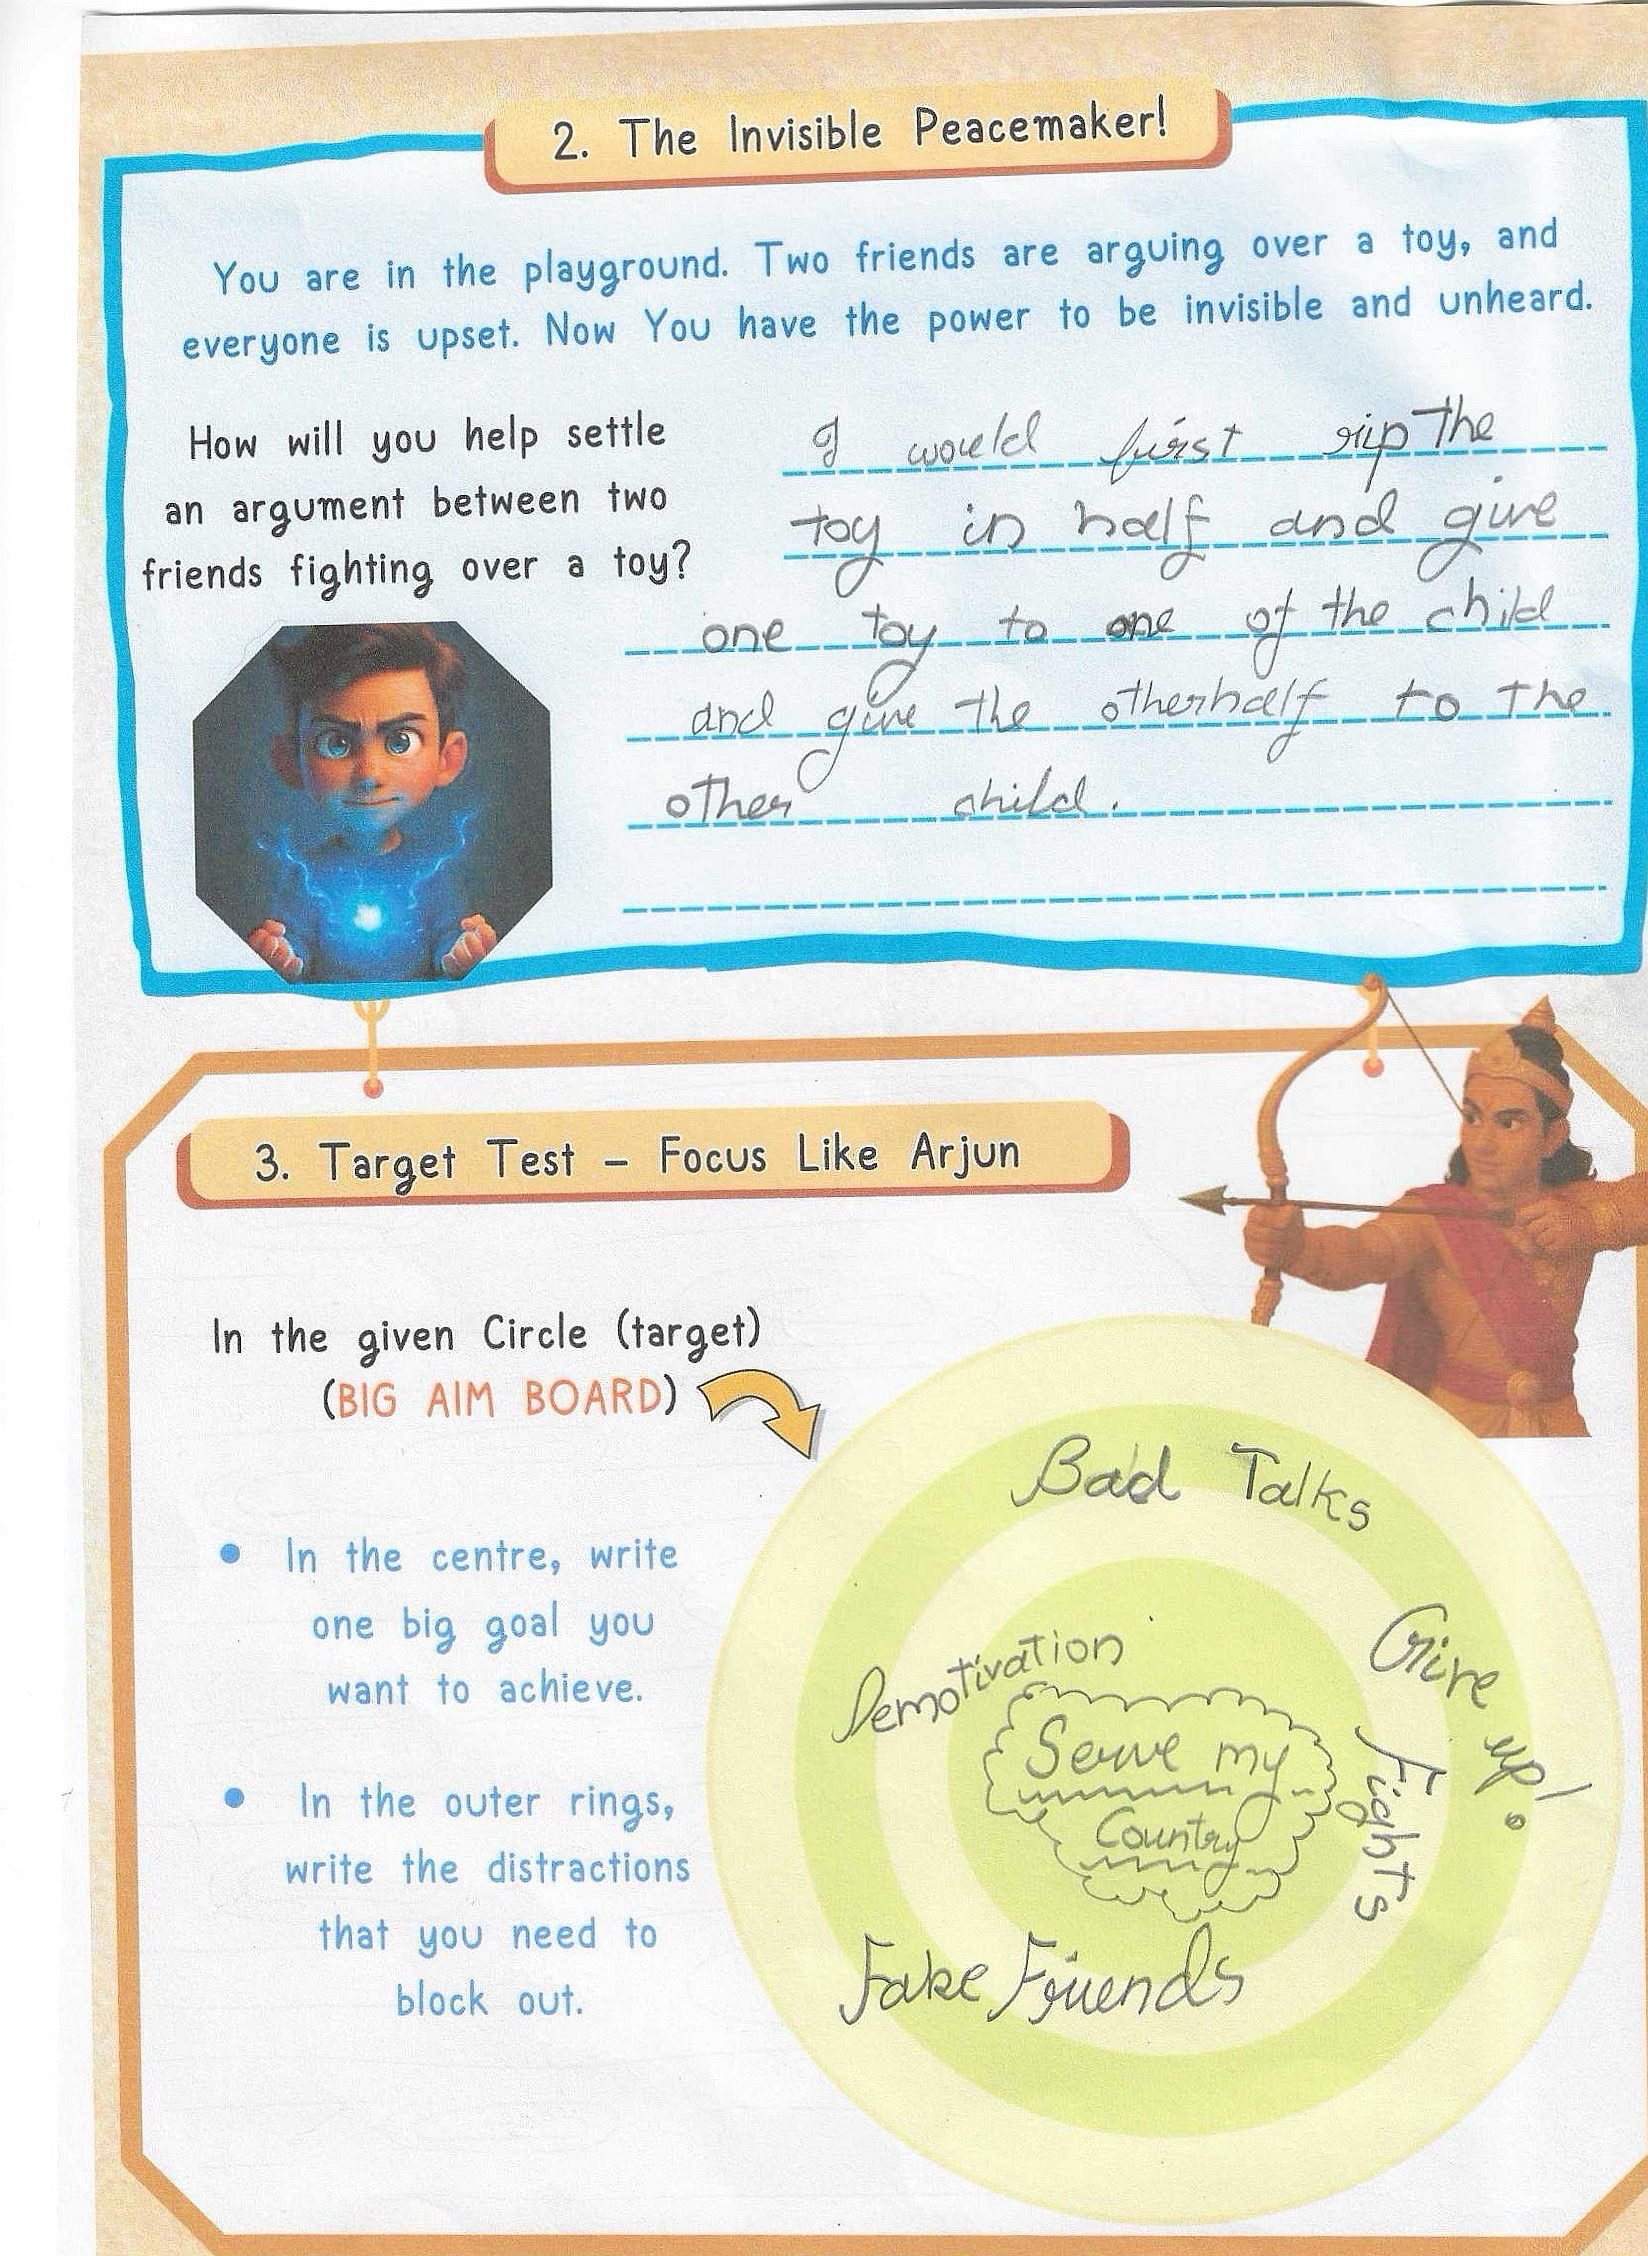 2. The Invisible Peacemaker!
You are in the playground. Two friends are arguing over a toy, and
everyone is upset. Now You have the power to be invisible and unheard.
How will you help settle
an argument between two
friends fighting over a toy?
I would first rip the
toy in half and give
one toy to one of the child
and give the otherhalf to the
other child.
3. Target Test – Focus Like Arjun
In the given Circle (target)
(BIG AIM BOARD)
• In the centre, write
one big goal you
want to achieve.
• In the outer rings,
write the distractions
that you need to
block out.
Bad Talks
Give up!
Demotivation
Serve my
Country
Fights
Fake Friends